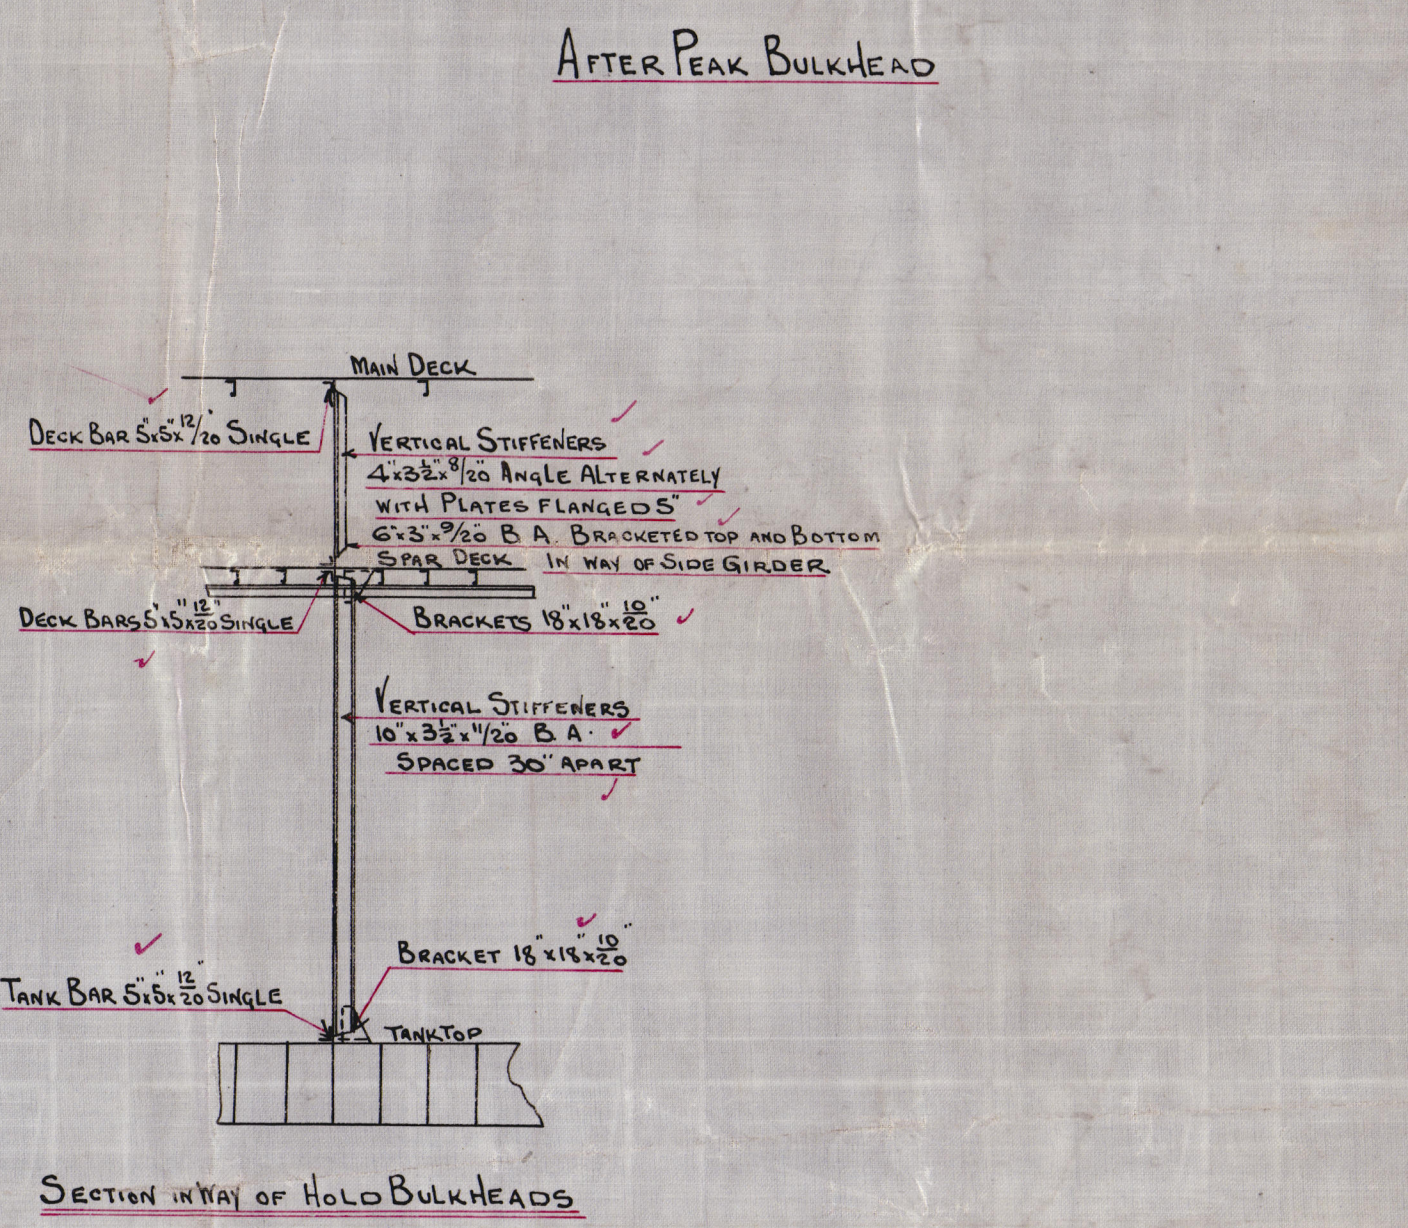 AFTER PEAK BULKHEAD
MAIN DECK
DECK BAR 5"x5"x12/20" SINGLE
VERTICAL STIFFENERS
4"x3½"x8/20" ANGLE ALTERNATELY
WITH PLATES FLANGED 5"
6"x3"x9/20" B A. BRACKETED TOP AND BOTTOM
SPAR DECK IN WAY OF SIDE GIRDER
DECK BARS 5"x5"x12/20" SINGLE
BRACKETS 18"x18"x10/20"
VERTICAL STIFFENERS
10"x3½"x11/20" B. A.
SPACED 30" APART
BRACKET 18"x18"x10/20"
TANK BAR 5"x5"x12/20" SINGLE
TANK TOP
SECTION IN WAY OF HOLD BULKHEADS